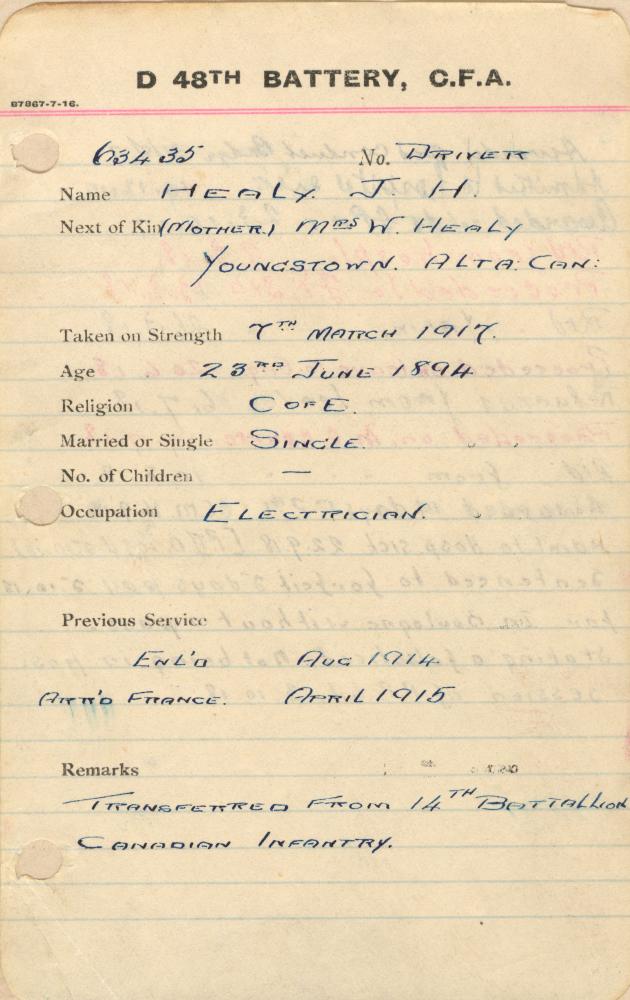 D 48TH BATTERY, C.F.A.
87867-7-16.
63435 No. DRIVER
Name HEALY. J. H.
Next of Kin (MOTHER.) MRS W. HEALY
YOUNGSTOWN. ALTA: CAN:
Taken on Strength 7TH MARCH 1917.
Age 23RD JUNE 1894
Religion C OF E.
Married or Single SINGLE.
No. of Children —
Occupation ELECTRICIAN.
Previous Service
ENL'D AUG 1914
ARR'D FRANCE. APRIL 1915
Remarks
TRANSFERRED FROM 14TH BATTALLION
CANADIAN INFANTRY.